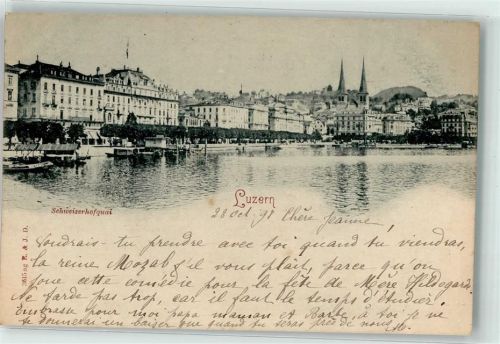 Luzern
Schweizerhofquai
28 Oct 97 Chère Jeanne,
Voudrais-tu prendre avec toi quand tu viendras,
la reine Mozab s'il vous plaît, parce qu'on
joue cette comédie pour la fête de Mère Hildegarde
Ne tarde pas trop, car il faut le temps d'étudier.
Embrasse pour moi papa maman et Marthe, à toi je ne
donnerai un baiser que quand tu seras près de nous
E. & J. D.